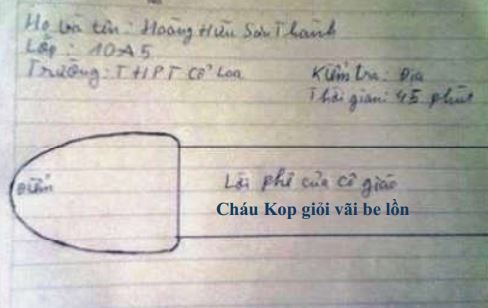 Họ và tên: Hoàng Hữu Sơn Thành
Lớp: 10A5
Trường: THPT Cổ Loa
Kiểm tra: Địa
Thời gian: 45 phút
Điểm
Lời phê của cô giáo
Cháu Kop giỏi vãi be lồn